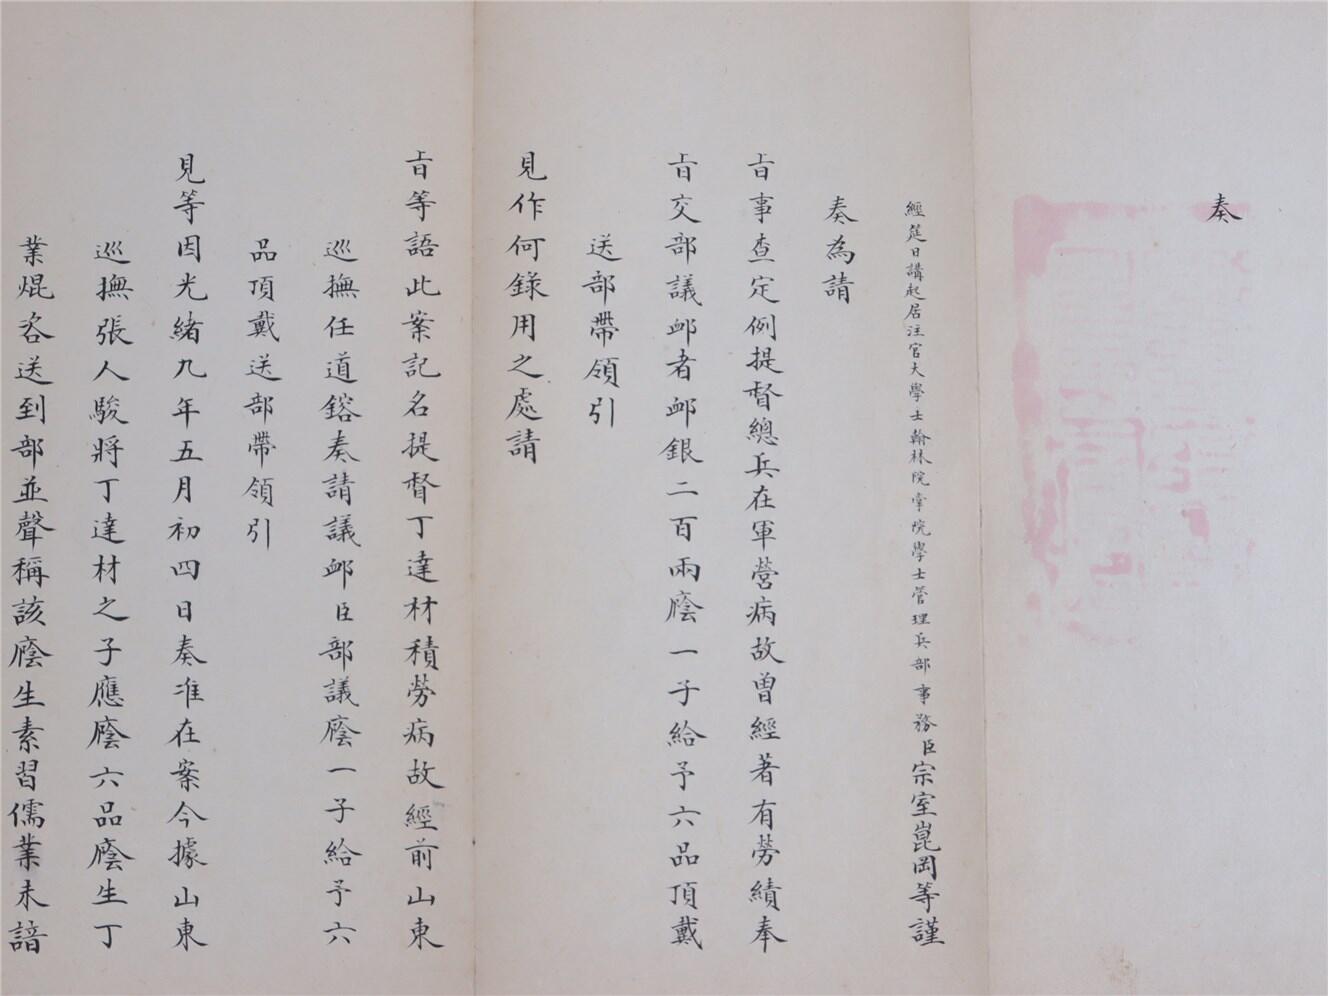 奏
經筵日講起居注官大學士翰林院掌院學士管理兵部事務臣宗室崑岡等謹
奏為請
旨事查定例提督總兵在軍營病故曾經著有勞績奉
旨交部議卹者卹銀二百兩廕一子給予六品頂戴
送部帶領引
見作何錄用之處請
旨等語此案記名提督丁達材積勞病故經前山東
巡撫任道鎔奏請議卹臣部議廕一子給予六
品頂戴送部帶領引
見等因光緒九年五月初四日奏准在案今據山東
巡撫張人駿將丁達材之子應廕六品廕生丁
業焜咨送到部並聲稱該廕生素習儒業未諳